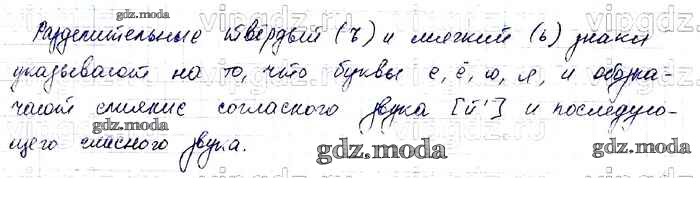 Разделительные твёрдый (ъ) и мягкий (ь) знаки
указывают на то, что буквы е, ё, ю, я, и обозна-
чают слияние согласного звука [й'] и последую-
щего гласного звука.
gdz.moda
gdz.moda
gdz.moda
gdz.moda